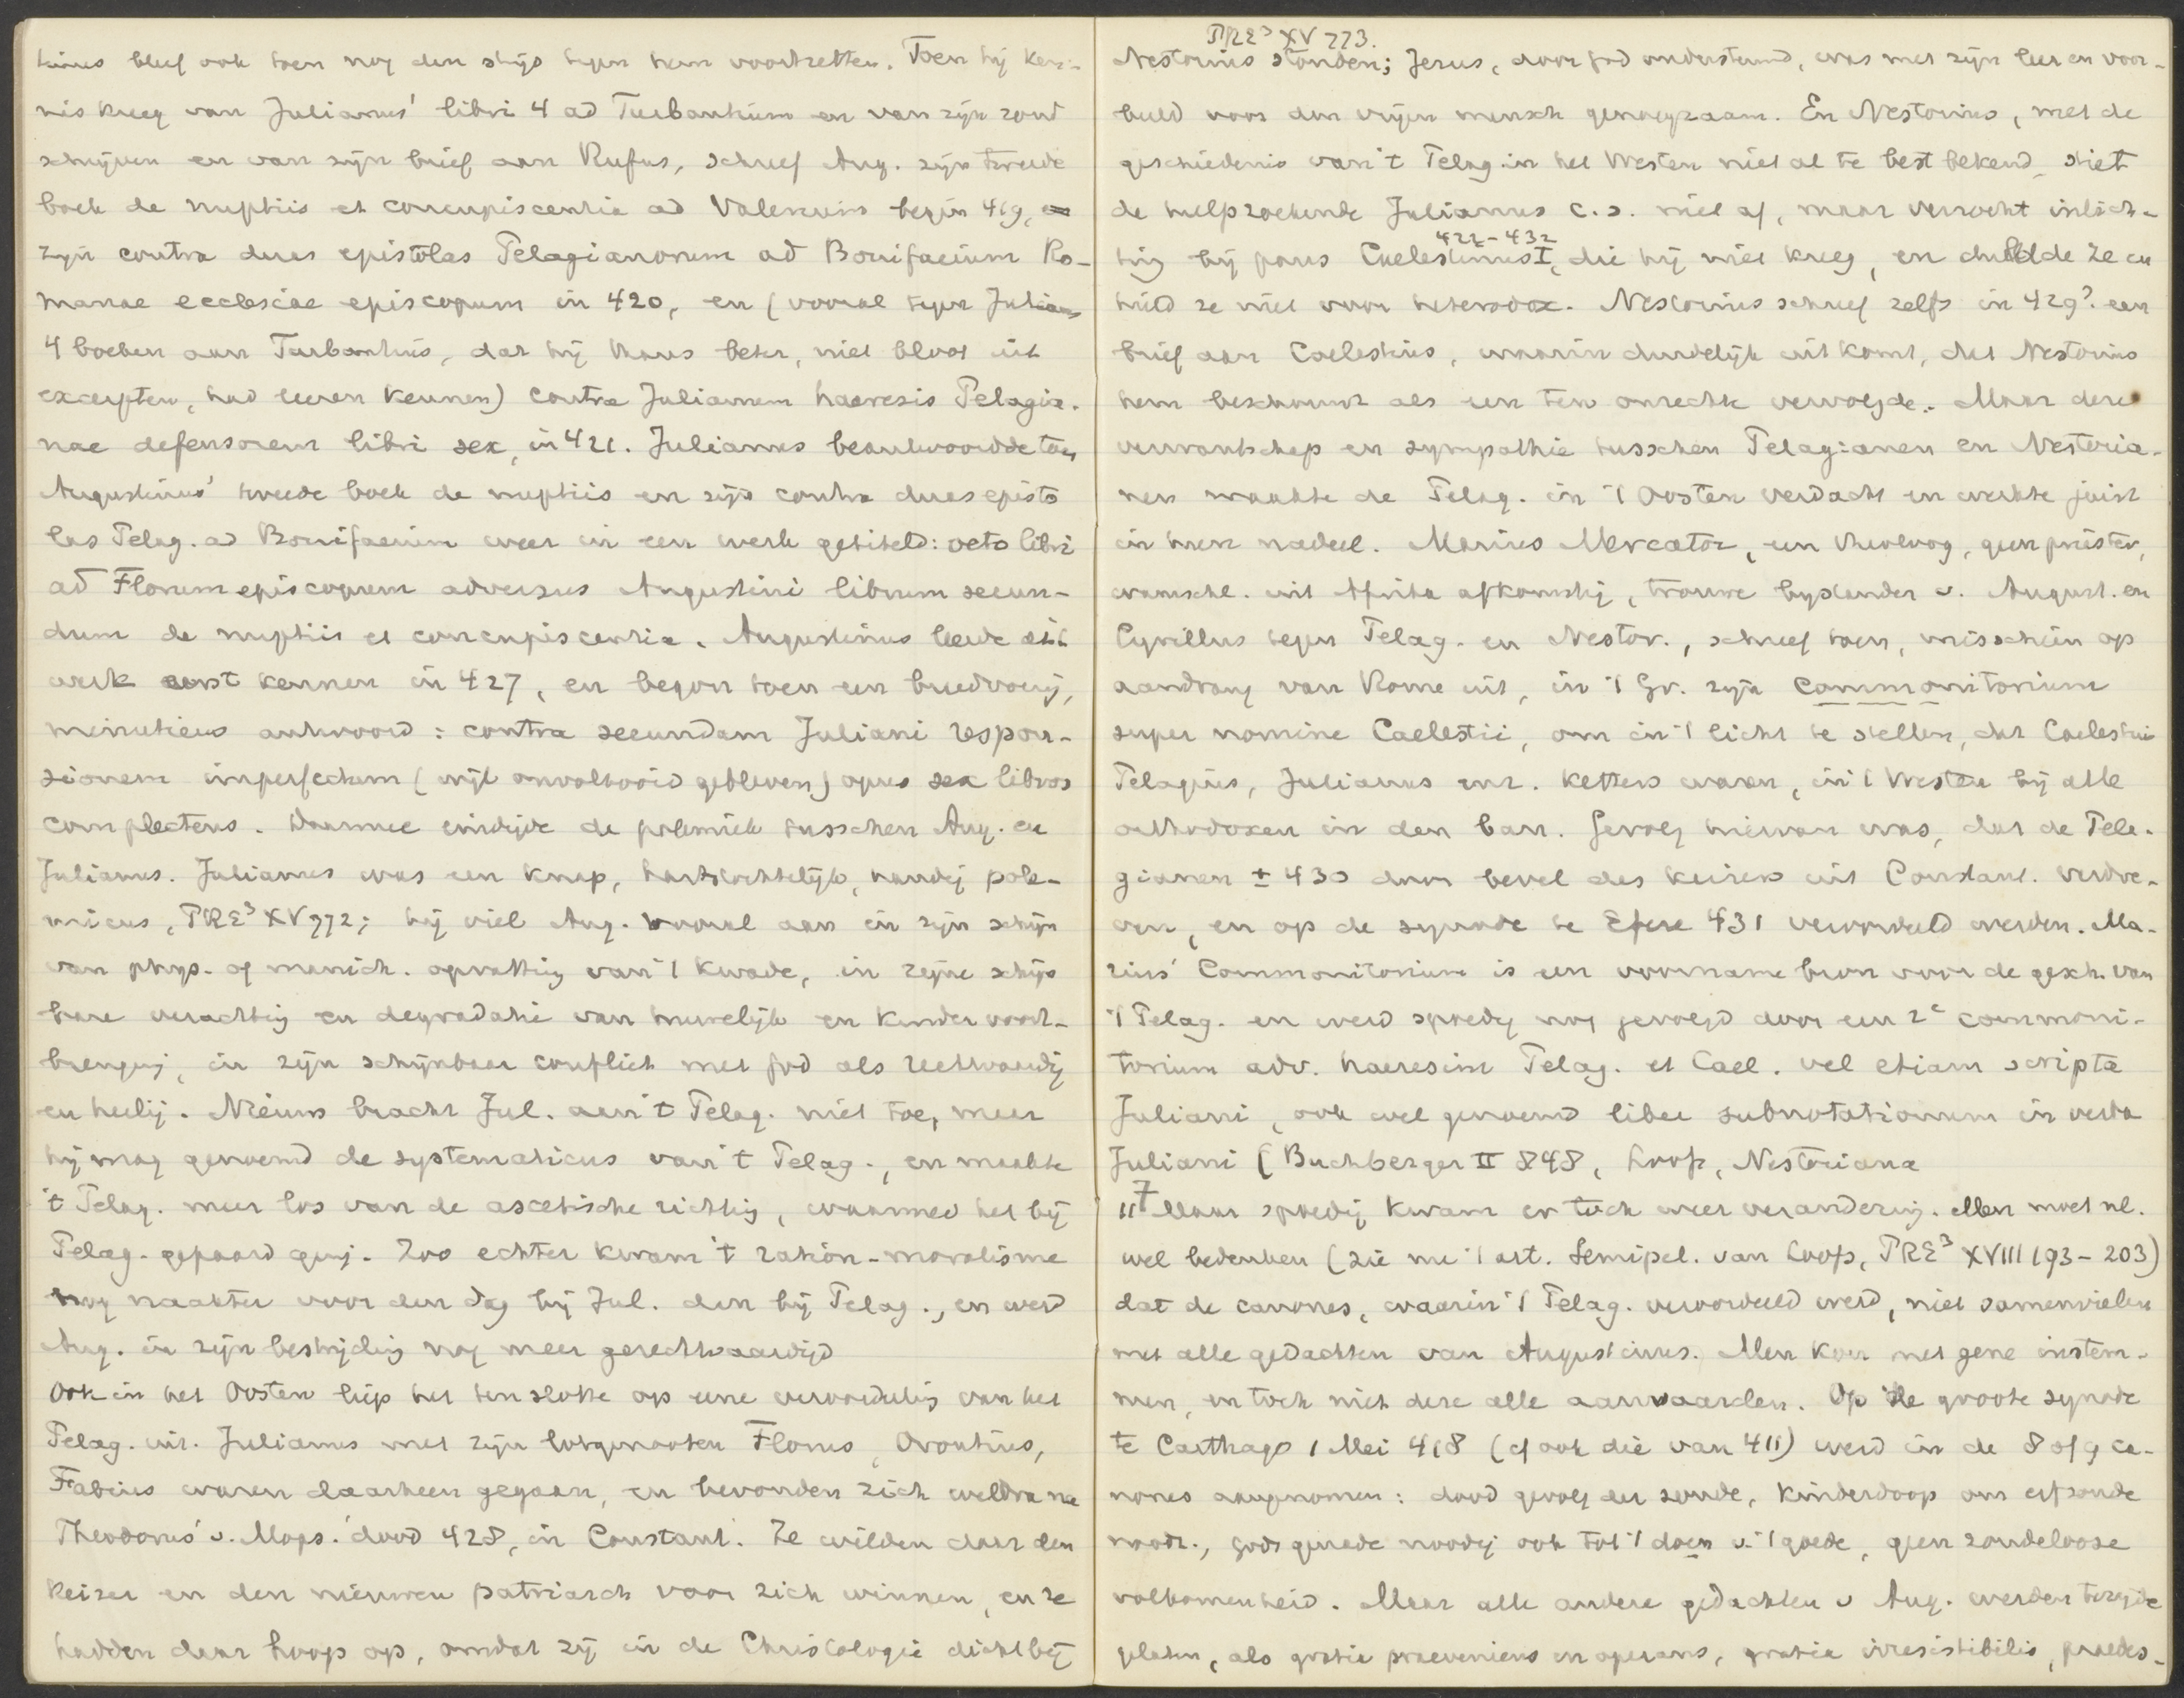 tinus bleef ook toen nog den strijd tegen hem voortzetten. Toen hij ken-
nis kreeg van Julianus' libri 4 ad Turbantium en van zijn rond
schrijven en van zijn brief aan Rufus, schreef Aug. zijn tweede
boek de nuptiis et concupiscentia ad Valerium begin 419,
zijn contra duas epistolas Pelagianorum ad Bonifacium Ro-
manae ecclesiae episcopum in 420, en (vooral tegen Julians
4 boeken aan Turbantius, dat hij thans beter, niet bloot uit
excerpten, had leeren kennen) contra Julianum haeresis Pelagia-
nae defensorem libri sex, in 421. Julianus beantwoordde toen
Augustinus' tweede boek de nuptiis en zijn contra duas episto
las Pelag. ad Bonifacium weer in een werk getiteld: octo libri
ad Florum episcopum adversus Augustini librum secun-
dum de nuptiis et concupiscentia. Augustinus leerde dit
werk eerst kennen in 427, en begon toen een breedvoerig,
minutieus antwoord: contra secundam Juliani respon-
sionem imperfectum (wijl onvoltooid gebleven) opus sex libros
complectens. Daarmee eindigde de polemiek tusschen Aug. en
Julianus. Julianus was een knap, hartstochtelijk, handig pole-
micus, PRE³ XV 772; hij viel Aug. vooral aan in zijn schijn
van phys. of manich. opvatting van 't kwade, in zijne schijn
bare verachting en degradatie van huwelijk en kindervoort-
brenging, in zijn schijnbaar conflict met God als rechtvaardig
en heilig. Nieuws bracht Jul. aan 't Pelag. niet toe, maar
hij mag genoemd de systematicus van 't Pelag., en maakte
't Pelag. meer los van de ascetische richting, waarmee het bij
Pelag. gepaard ging. Zoo echter kwam 't ration-moralisme
nog naakter voor den dag bij Jul. dan bij Pelag., en werd
Aug. in zijn bestrijding nog meer gerechtvaardigd
Ook in het Oosten liep het ten slotte op eene veroordeeling van het
Pelag. uit. Julianus met zijn lotgenooten Florus, Orontius,
Fabius waren daarheen gegaan, en bevonden zich weldra na
Theodorus' v. Mops. dood 428, in Constant. Ze wilden daar den
keizer en den nieuwen patriarch voor zich winnen, en ze
hadden daar hoop op, omdat zij in de Christologie dicht bij
PRE³ XV 773.
Nestorius stonden; Jezus, door God ondersteund, was met zijn leer en voor-
beeld voor den vrijen mensch genoegzaam. En Nestorius, met de
geschiedenis van 't Pelag. in het Westen niet al te best bekend, stiet
de hulpzoekende Julianus c.s. niet af, maar verzocht inlich-
422-432
ting bij paus Caelestinus I, die hij niet kreeg, en duldde ze en
hield ze niet voor heterodox. Nestorius schreef zelfs in 429? een
brief aan Caelestius, waarin duidelijk uitkomt, dat Nestorius
hem beschouwt als een ten onrechte vervolgde. Maar deze
verwantschap en sympathie tusschen Pelagianen en Nestoria-
nen maakte de Pelag. in 't Oosten verdacht en werkte juist
in hun nadeel. Marius Mercator, een theoloog, geen priester,
waarschl. uit Afrika afkomstig, trouwe bijstander v. August. en
Cyrillus tegen Pelag. en Nestor., schreef toen, misschien op
aandrang van Rome uit, in 't Gr. zijn Commonitorium
super nomine Caelestii, om in 't licht te stellen, dat Caelestius
Pelagius, Julianus enz. ketters waren, in 't Westen bij alle
orthodoxen in den ban. Gevolg hiervan was, dat de Pela-
gianen ± 430 door bevel des keizers uit Constant. verdre-
ven, en op de synode te Efeze 431 veroordeeld werden. Ma-
rius' Commonitorium is een voorname bron voor de gesch. van
't Pelag. en werd spoedig nog gevolgd door een 2e commoni-
torium adv. haeresim Pelag. et Cael. vel etiam scripta
Juliani, ook wel genoemd liber subnotationum in verba
Juliani (Buchberger II 848, Loofs, Nestoriana
117 Maar spoedig kwam er toch weer verandering. Men moet nl.
wel bedenken (zie nu 't art. Semipel. van Loofs, PRE³ XVIII 193-203)
dat de canones, waarin 't Pelag. veroordeeld werd, niet samenvielen
met alle gedachten van Augustinus. Men kon met gene instem-
men, en toch niet deze alle aanvaarden. Op de groote synode
te Carthago 1 Mei 418 (cf ook die van 411) werd in de 8 of 9 ca-
nones aangenomen: dood gevolg der zonde, kinderdoop om erfzonde
noodz., Gods genade noodig ook tot 't doen v. 't goede, geen zondelooze
volkomenheid. Maar alle andere gedachten v Aug. werden terzijde
gelaten, als gratia praeveniens en operans, gratia irresistibilis, praedes-